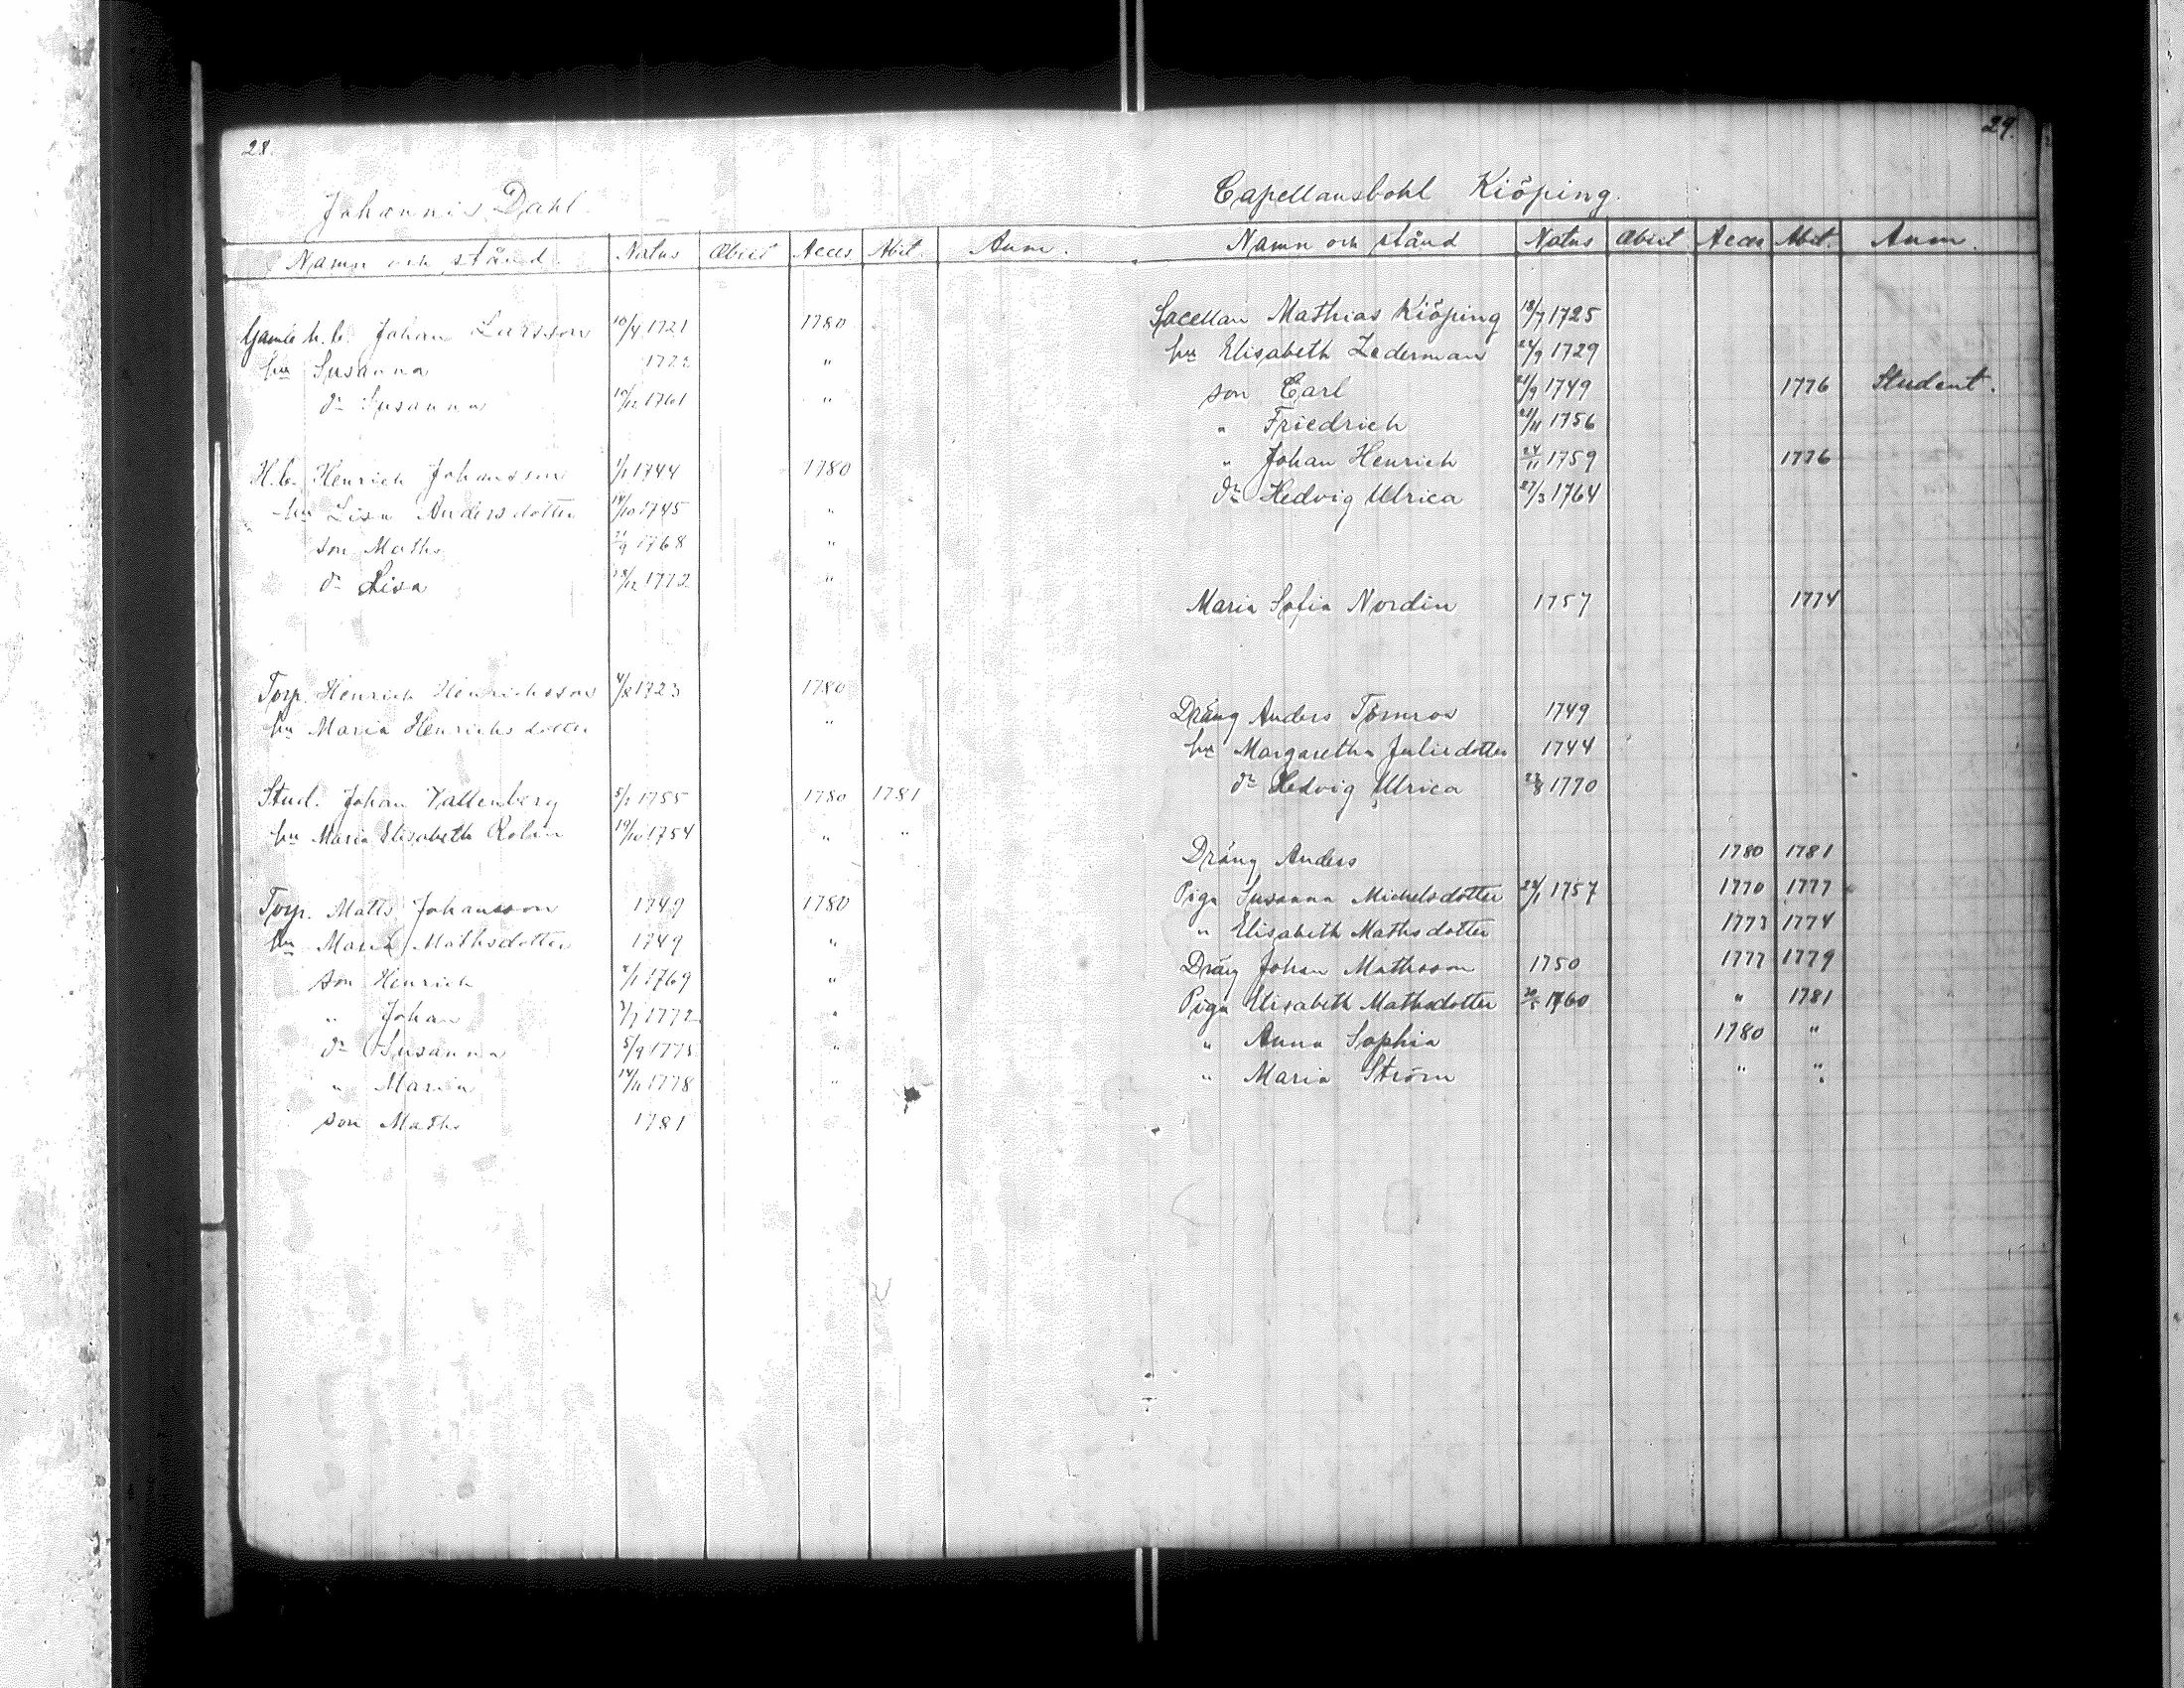 28.
Johannis Dahl.
Namn och stånd. Natus Obiit Acces Abit. Anm.
Gamle h.b. Johan Larsson 10/4 1721 1780
hu Susanna 1722 "
dr Susanna 10/12 1761 "
H.b. Henrich Johansson 1/1 1744 1780
hu Lisa Andersdotter 14/10 1745 "
son Maths 21/9 1768 "
dr Lisa 28/12 1772 "
Torp. Henrich Henrichsson 4/8 1723 1780
hu Maria Henrichsdotter "
Stud. Johan Vallenberg 5/2 1755 1780 1781
hu Maria Elisabeth Rolin 19/10 1754 " "
Torp. Matts Johansson 1749 1780
hu Maria Mathsdotter 1749 "
son Henrich 2/1 1769 "
" Johan 3/7 1772 "
dr Susanna 5/9 1775 "
" Maria 14/11 1778 "
son Maths 1781
29.
Capellansbohl Kiöping.
Namn och stånd Natus Obiit Acces Abit. Anm.
Sacellan Mathias Kiöping 18/7 1725
hu Elisabeth Lederman 24/9 1729
son Carl 21/9 1749 1776 Student.
" Friedrich 21/11 1756
" Johan Henrich 24/11 1759 1776
dr Hedvig Ulrica 27/3 1764
Maria Sofia Nordin 1757 1774
Dräng Anders Törnros 1749
hu Margaretha Juliedotter 1744
dr Hedvig Ulrica 23/8 1770
Dräng Anders 1780 1781
Piga Susanna Michelsdotter 24/1 1757 1770 1777
" Elisabeth Mathsdotter 1773 1774
Dräng Johan Mathsson 1750 1777 1779
Piga Elisabeth Mathsdotter 1760 " 1781
" Anna Sophia 1780 "
" Maria Ström " "